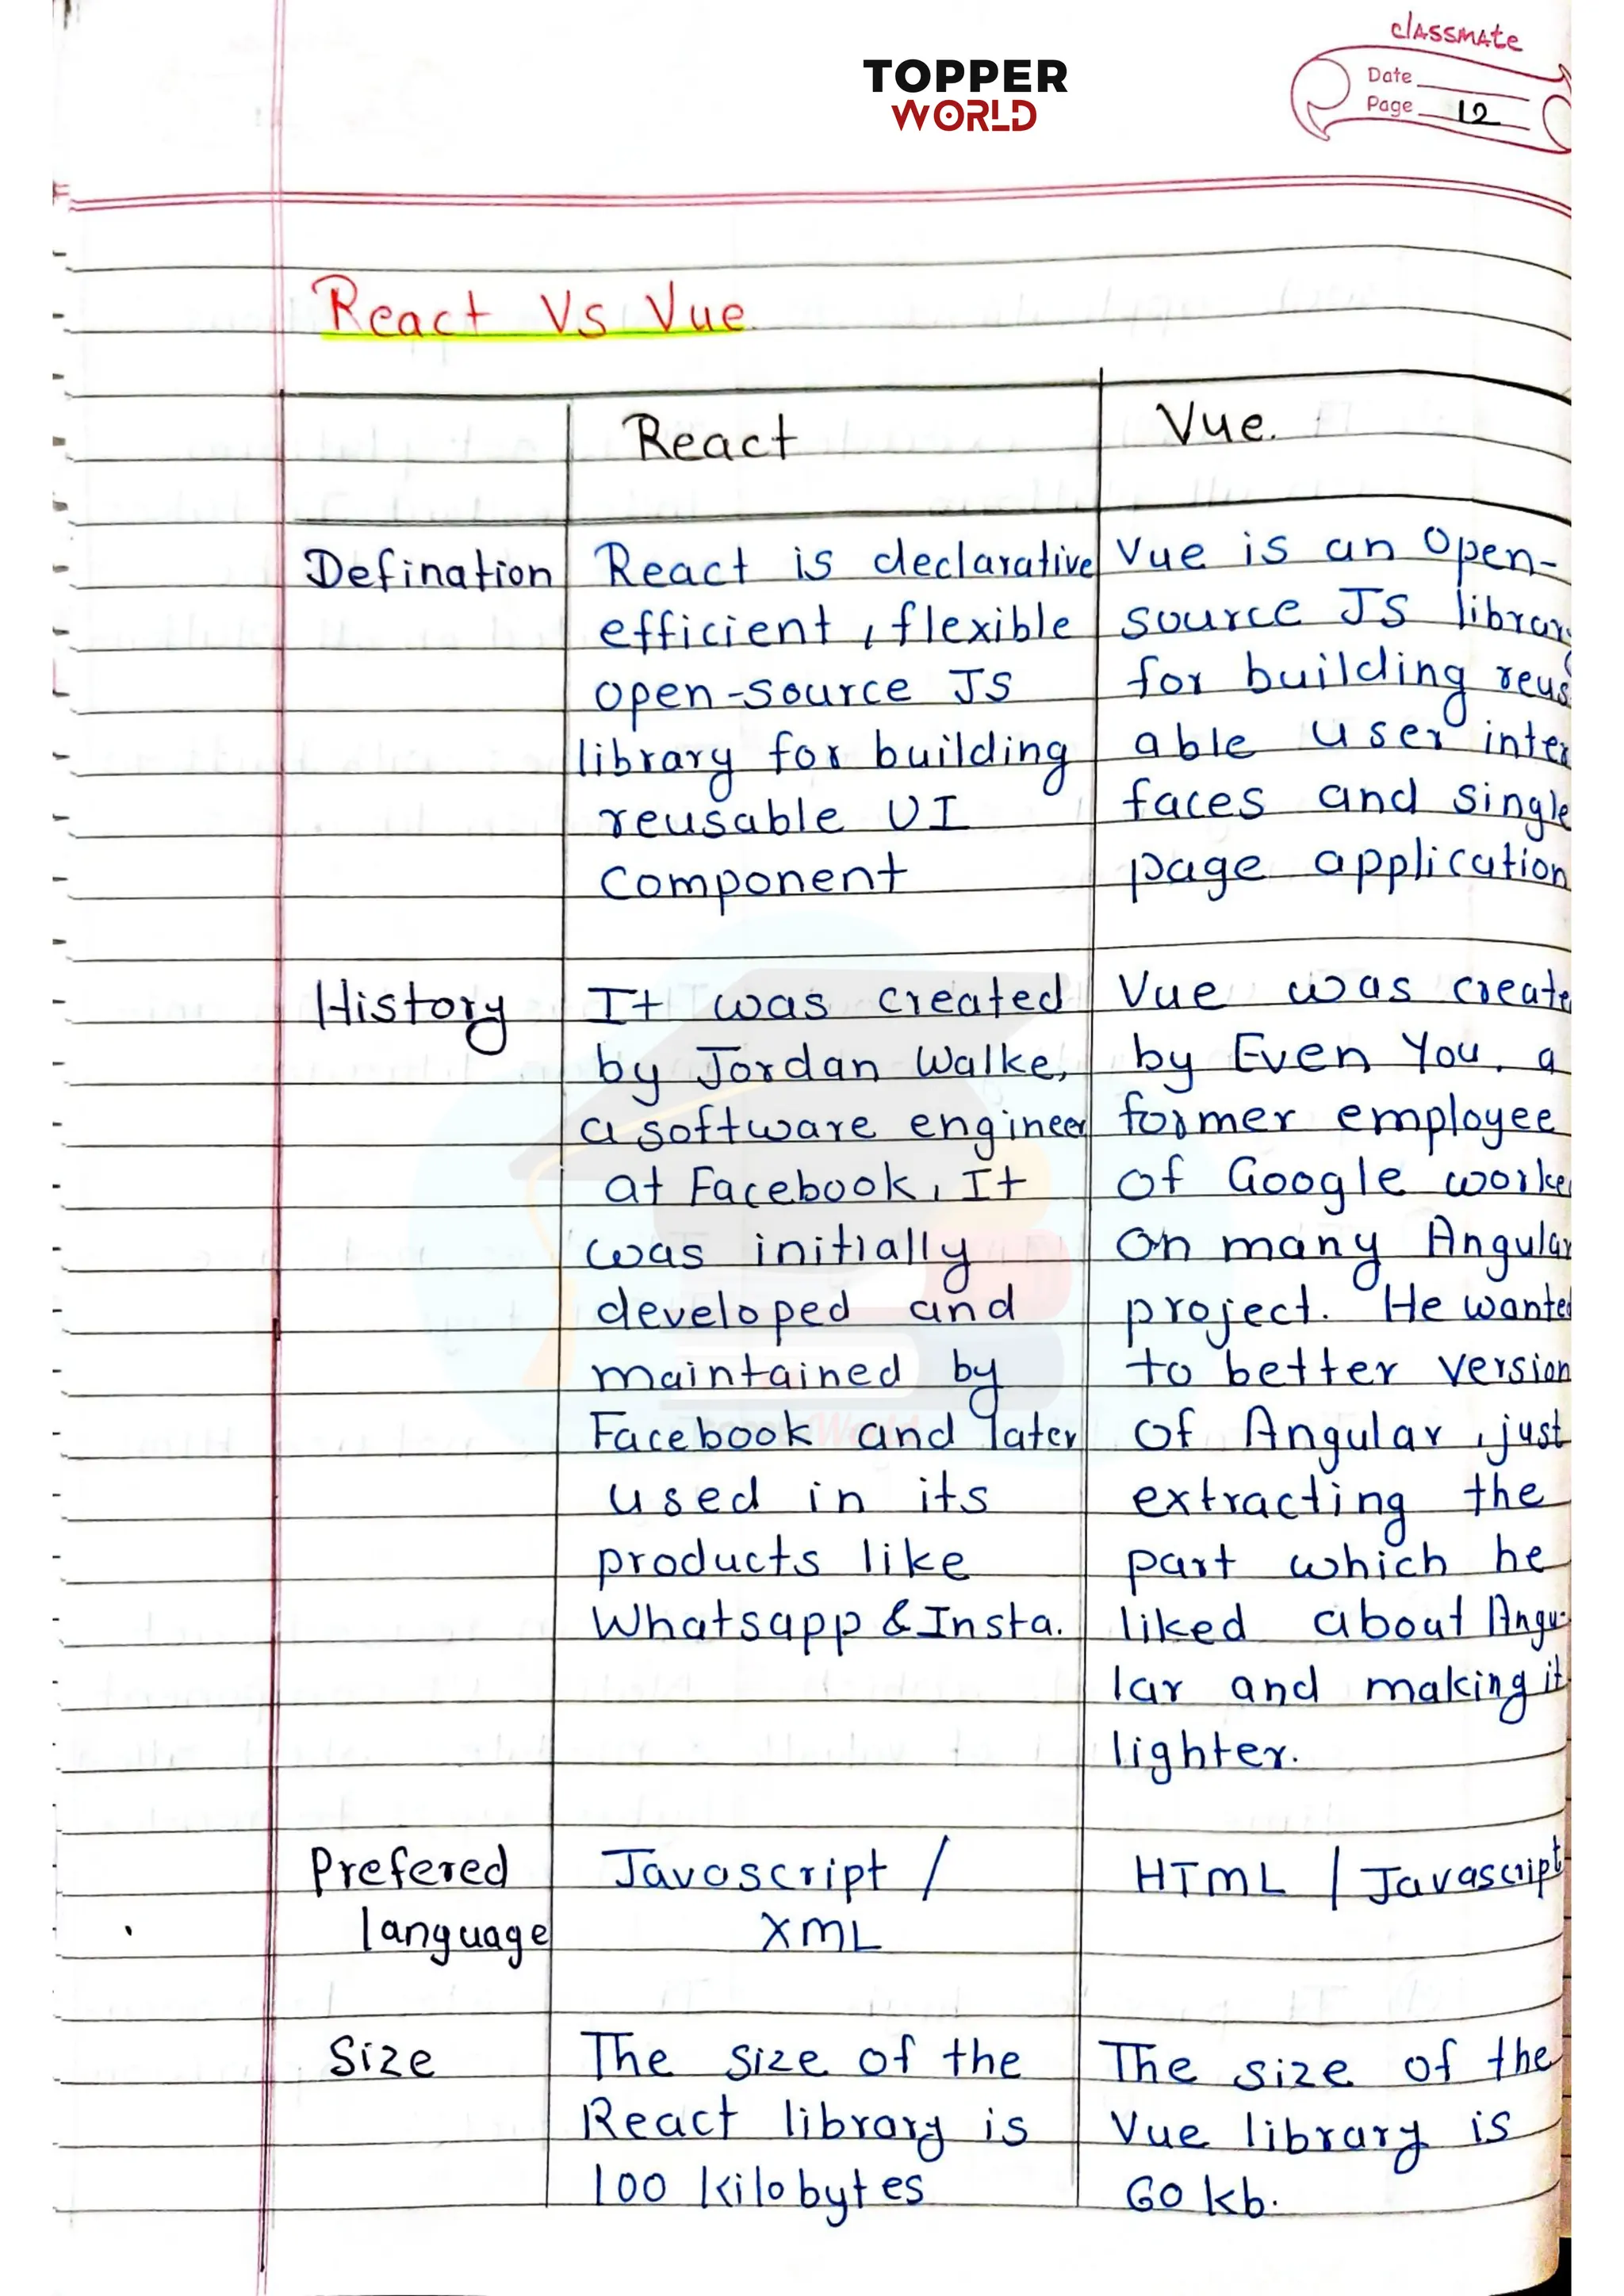 classmate
TOPPER
WORLD
Date
Page 12
React Vs Vue.
React
Vue.
Defination
React is declarative
efficient, flexible
open-source JS
library for building
reusable UI
component
Vue is an open-
source JS library
for building reus
able user inter
faces and single
page application
History
It was created
by Jordan Walke,
a software engineer
at Facebook, It
was initially
developed and
maintained by
Facebook and later
used in its
products like
Whatsapp & Insta.
Vue was create
by Even You, a
former employee
of Google worke
on many Angular
project. He wanted
to better version
of Angular, just
extracting the
part which he
liked about Angu-
lar and making it
lighter.
Prefered
language
Javascript /
XML
HTML / Javascript
Size
The size of the
React library is
100 kilobytes
The size of the
Vue library is
60 kb.